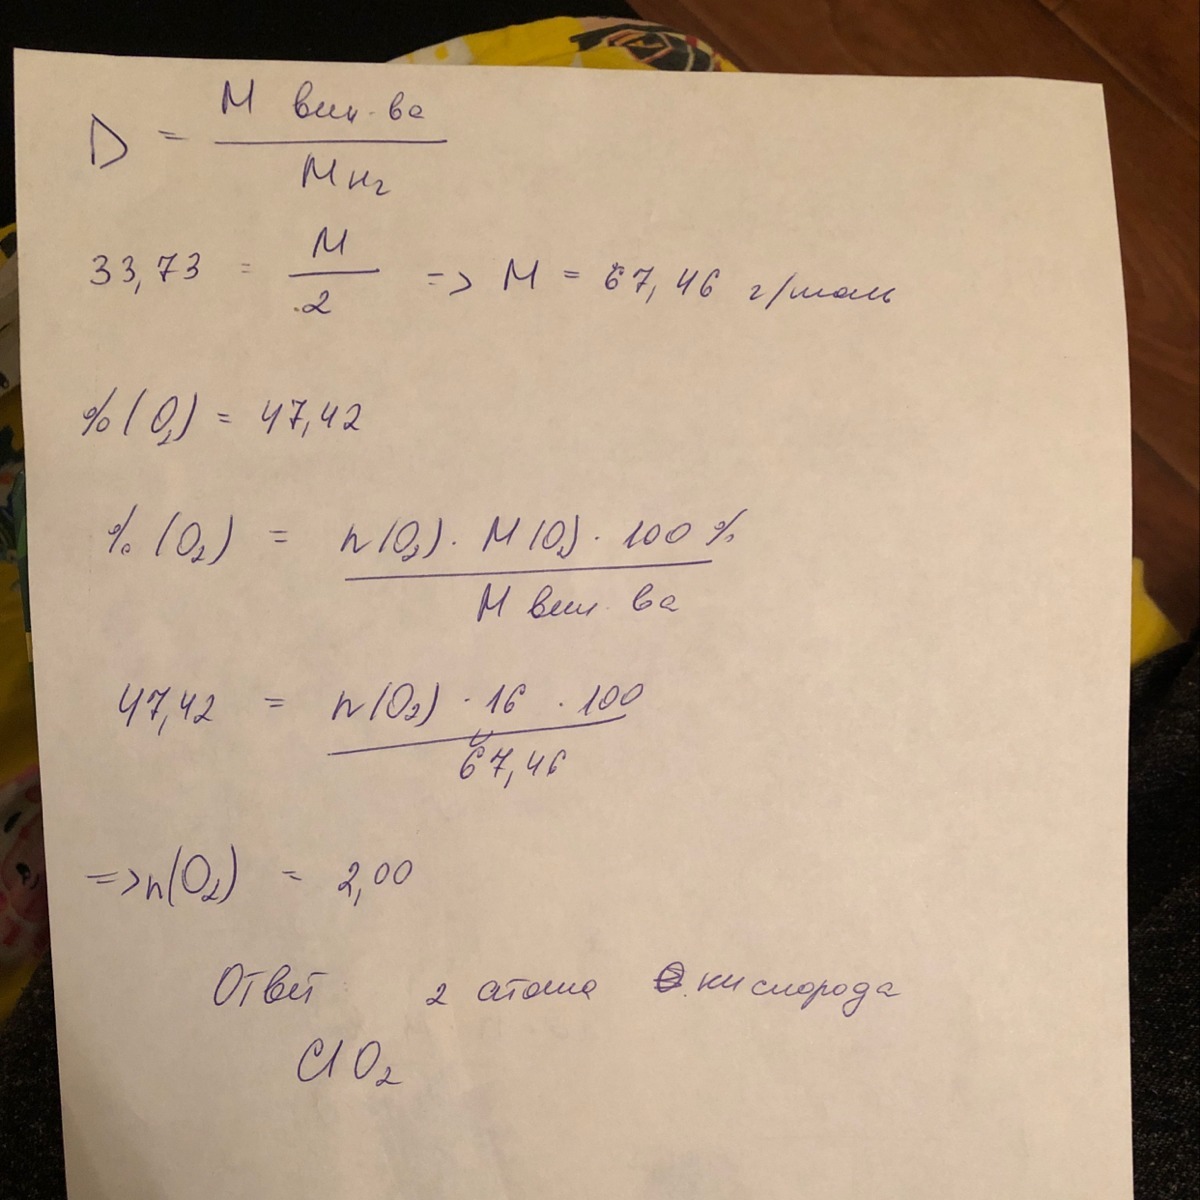 D = M вещ-ва / M H2
33,73 = M / 2 => M = 67,46 г/моль
%(O2) = 47,42
% (O2) = n(O2) · M(O2) · 100 % / M вещ-ва
47,42 = n(O2) · 16 · 100 / 67,46
=> n(O2) = 2,00
Ответ 2 атома кислорода
ClO2